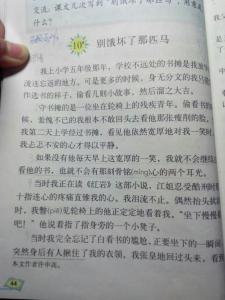 交流：课文几次写到“别饿坏了那
什么？
10* 别饿坏了那匹马
我上小学五年级那年，学校不远处的书摊是我放学
流连忘返的地方。可是更多的时候，身无分文的我只能
作选书的样子，偷看几则小故事，然后溜之大吉。
守书摊的是一位坐在轮椅上的残疾青年。偷看书的
候，羞愧不已的我根本不敢回头去看他那张瘦削的脸。
我第二天上学经过书摊，看见他依然宽厚地对我一笑时
我忐忑不安的心才得以平静。
如果没有他每天早上这宽厚的一笑，我就不会继续
看他的书，也就不会有那刻骨铭(míng)心的两个耳光。
当时我正在读《红岩》这部小说，江姐忍受酷刑
十指连心的疼痛直锥我的心。我泪流不止。偶然抬头
时，我瞥(piē)见轮椅上的他正定定地看着我。“坐下慢慢
吧！”他说着指了指身旁的一个小凳子。
当时我完全忘记了白看书的尴尬，正要坐下的一瞬间
突然身后有人揪住了我的衣领。我张皇地回过头来，看
本文作者许申高。
44